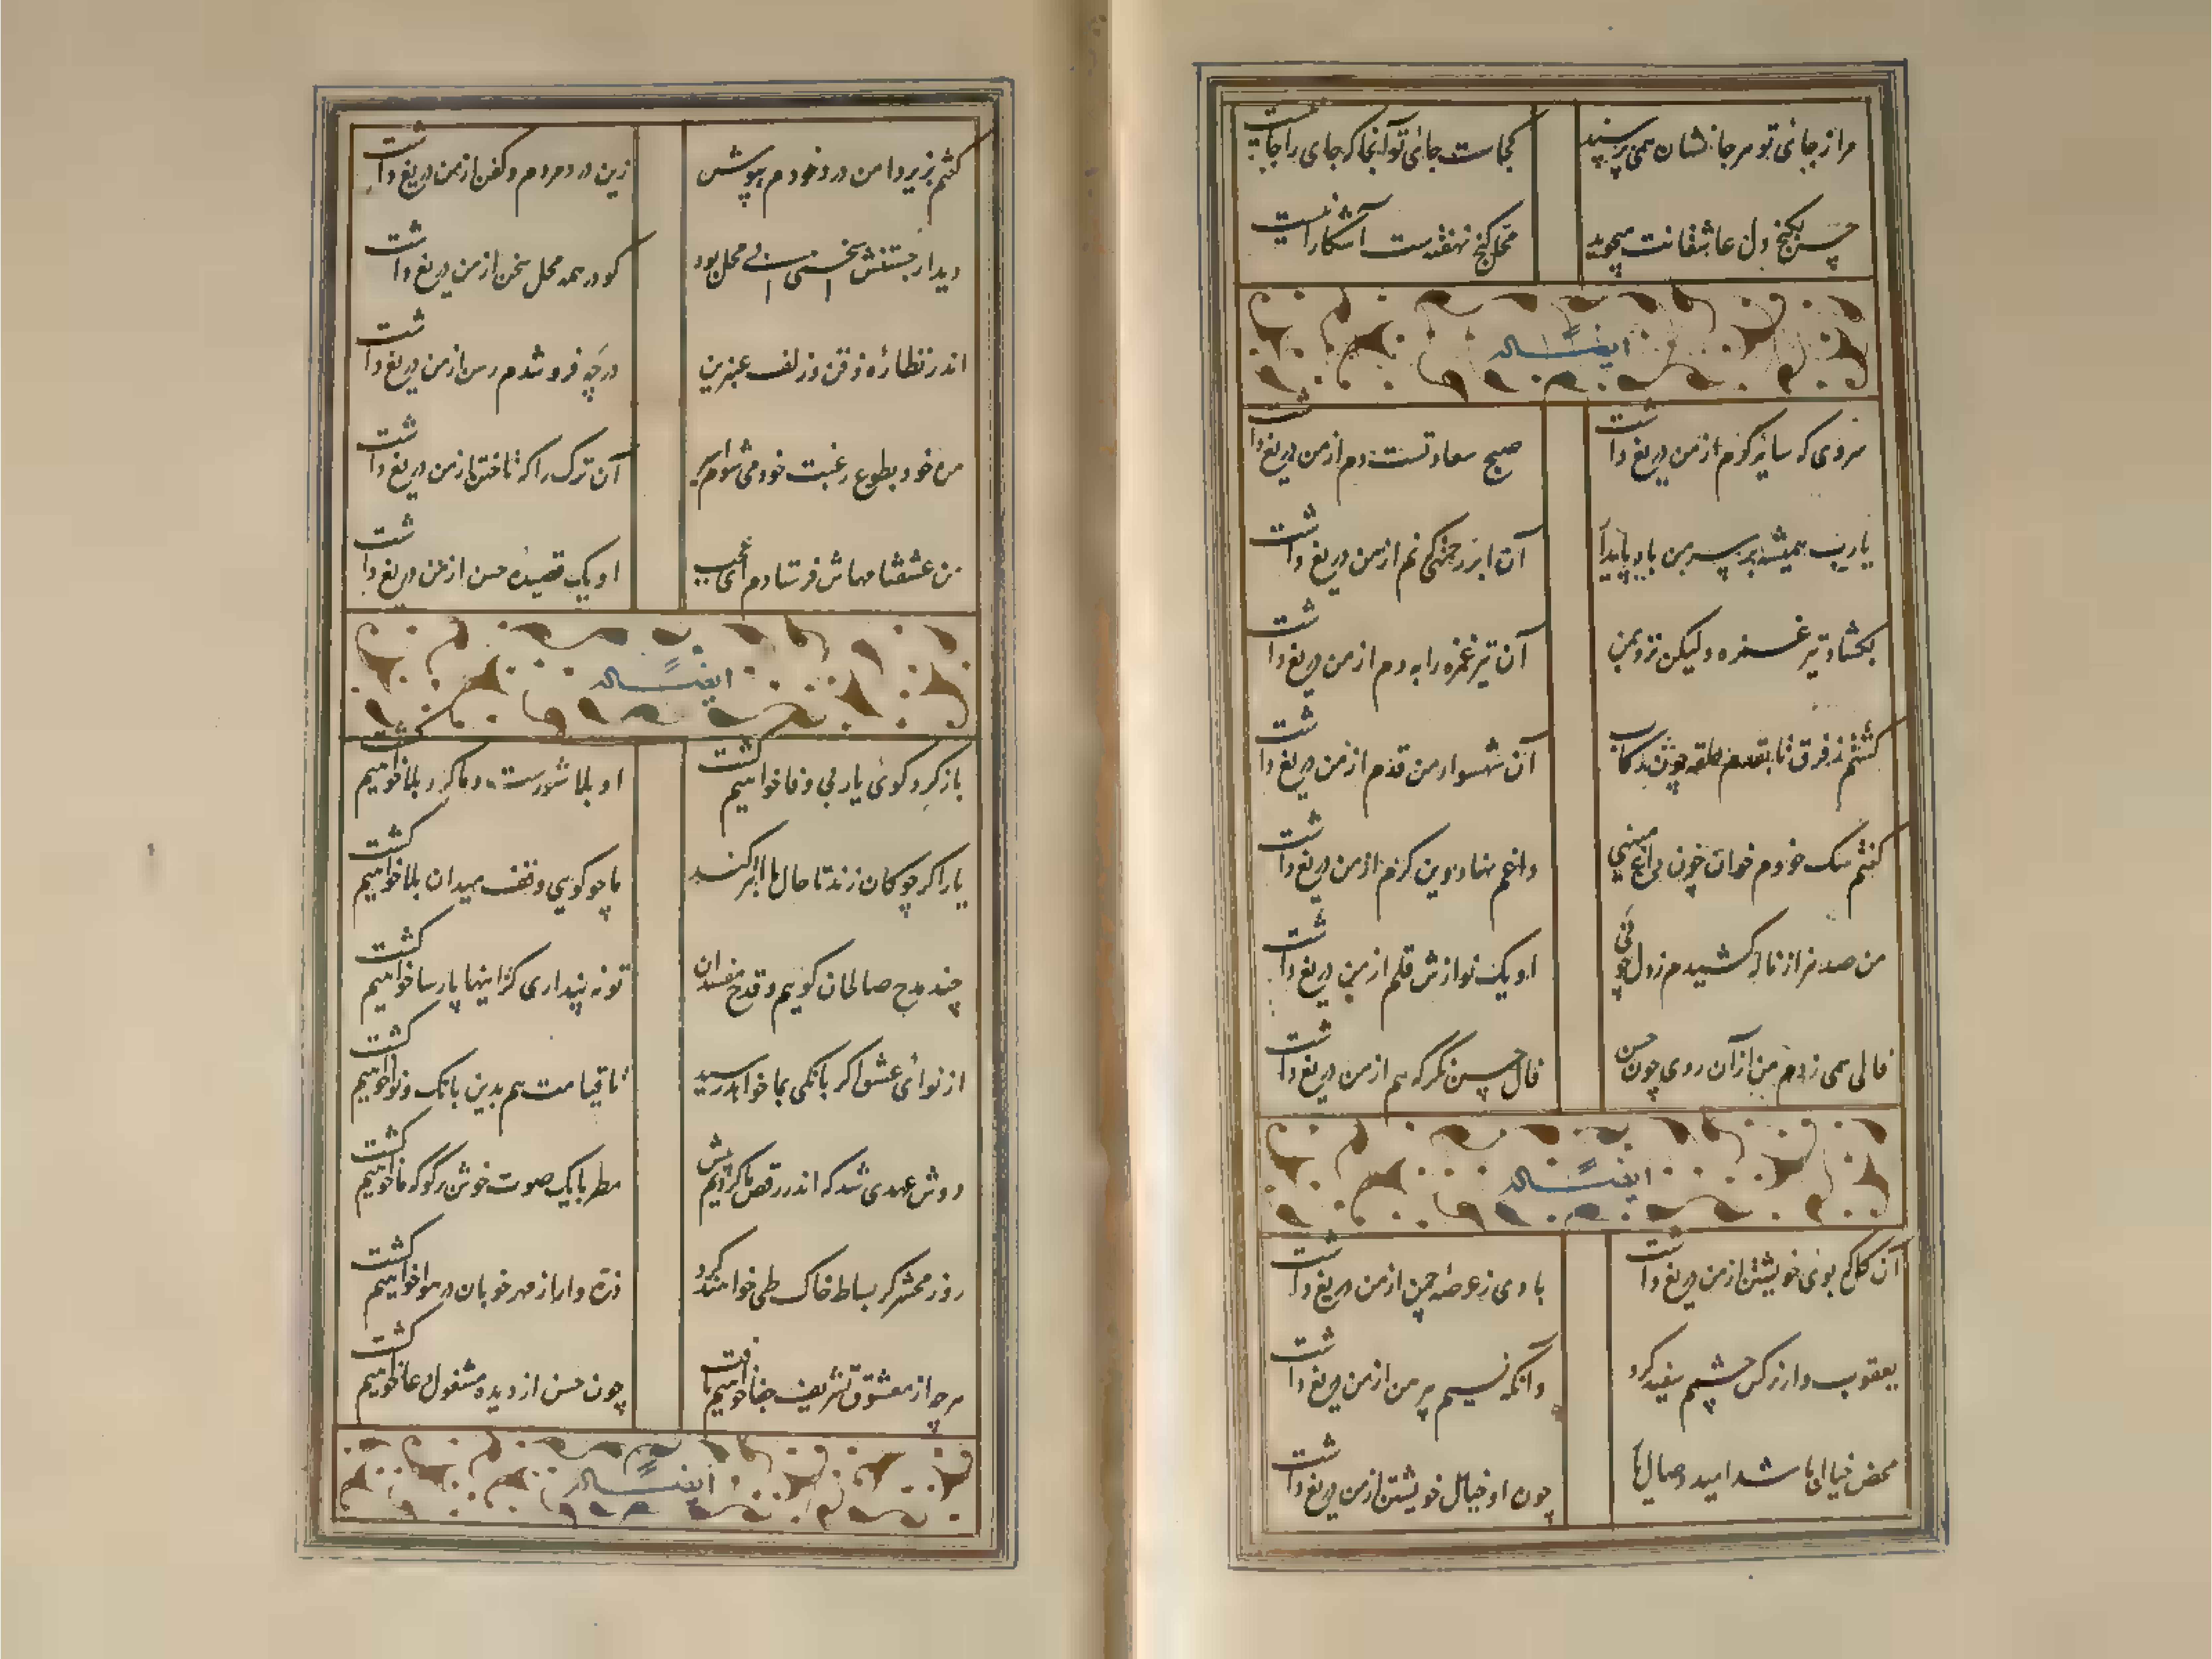 مرا ز جائی تو هر جا نشان همی پرسند
کجاست جائی تو آنجا که جای را جا نیست
حسن بکنج دل عاشقانت میجوید
محل گنج نهفتست آشکارا نیست
ایضاً له
سروی که سایه کرم از من دریغ داشت
صبح سعادتست دم از من دریغ داشت
یارب همیشه بر سر من باد پایدار
آن ابر رحمتی که نم از من دریغ داشت
بکشاد تیر غمزه ولیکن نزد بمن
آن تیر غمزه را به دم از من دریغ داشت
گشتم ز فرق تا بقدم حلقه چون رکاب
آن شهسوار من قدم از من دریغ داشت
گفتم سگ خودم خوان چون بی داغ می‌نهی
داغم نهاد وین کرم از من دریغ داشت
من صد هزار ناله کشیدم ز دل چو نی
او یک نوازش قلم از من دریغ داشت
فالی همی زدم من از آن روی چون حسن
فال حسن نگر که هم از من دریغ داشت
ایضاً له
آن گل که بوی خویشتن از من دریغ داشت
بادی ز عرصهٔ چمن از من دریغ داشت
یعقوب وار نرگس چشمم سفید کرد
وانگه نسیم پیرهن از من دریغ داشت
محض خیال باشد امید وصال ما
چون او خیال خویشتن از من دریغ داشت
گفتم بزیر دامن درد خودم بپوش
زین درد مردم و کفن از من دریغ داشت
دیدار جستنش سخنی بی محل بود
کو در همه محل سخن از من دریغ داشت
اندر نظارهٔ ذقن و زلف عنبرین
در چه فرو شدم رسن از من دریغ داشت
من خود بطوع رغبت خود می شوم اسیر
آن ترک را که تاختن از من دریغ داشت
من عشقنامهاش فرستادم ای عجب
او یک قصیدهٔ حسن از من دریغ داشت
ایضاً له
باز گرد کوی یار بی وفا خواهیم گشت
او بلا شورست و ما گرد بلا خواهیم گشت
یار اگر چوگان زند تا حال ما ابتر کند
ما چو گویی وقف میدان بلا خواهیم گشت
چند مدح صالحان گوییم و قدح مفسدان
تو نه پنداری کزاینها پارسا خواهیم گشت
از نوای عشق اگر بانگی بما خواهد رسید
تا قیامت هم بدین بانگ و نوا خواهیم گشت
دوش عهدی شد که اندر رقص ما گردیم بیش
مطربا یک صوت خوش برگو که ما خواهیم گشت
روز محشر گر بساط خاک طی خواهند کرد
ذره وار از مهر خوبان در هوا خواهیم گشت
هرچه از معشوق تشریف جفا خواهیم یافت
چون حسن از دیده مشغول دعا خواهیم گشت
ایضاً له